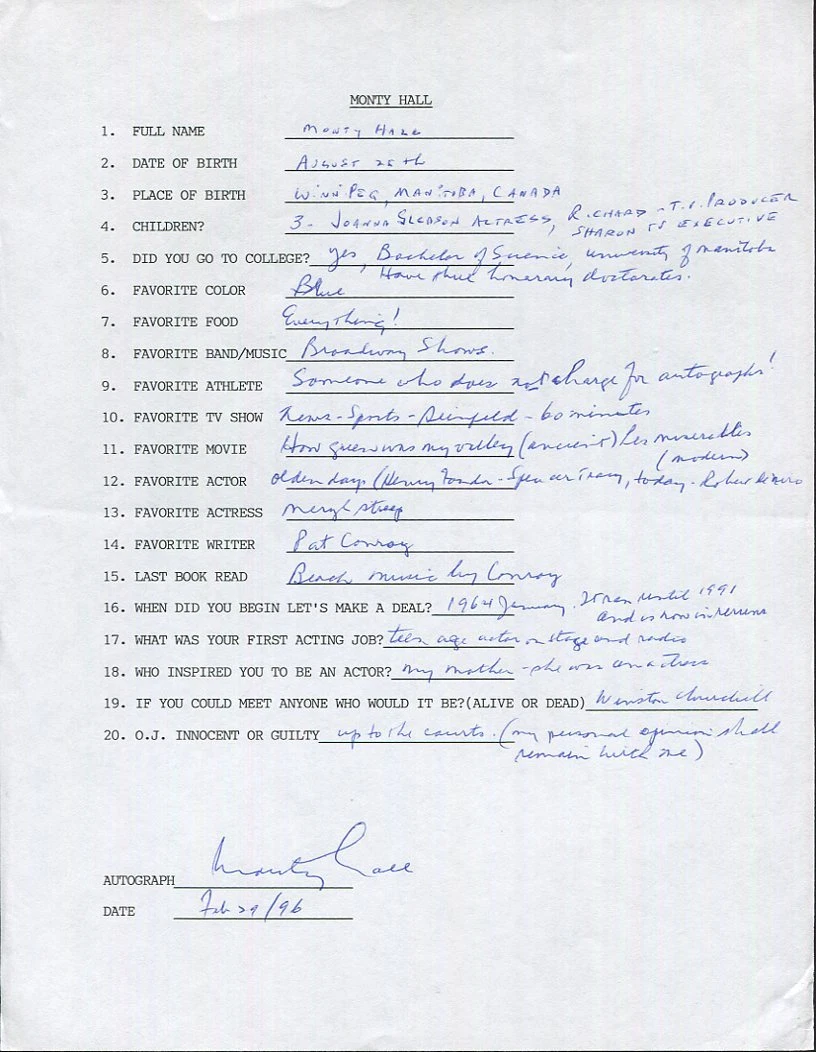 MONTY HALL
1. FULL NAME Monty Hall
2. DATE OF BIRTH August 25th
3. PLACE OF BIRTH Winnipeg, Manitoba, Canada
4. CHILDREN? 3 - Joanna Gleason Actress, Richard - T.V. Producer
Sharon TV Executive
5. DID YOU GO TO COLLEGE? yes, Bachelor of Science, university of manitoba
Have three honorary doctorates.
6. FAVORITE COLOR Blue
7. FAVORITE FOOD Everything!
8. FAVORITE BAND/MUSIC Broadway Shows.
9. FAVORITE ATHLETE Someone who does not charge for autographs!
10. FAVORITE TV SHOW News - Sports - Seinfeld - 60 minutes
11. FAVORITE MOVIE How green was my valley (ancient) Les miserables
(modern)
12. FAVORITE ACTOR olden days (Henry Fonda - Spencer Tracy, today - Robert deniro
13. FAVORITE ACTRESS meryl streep
14. FAVORITE WRITER Pat Conroy
15. LAST BOOK READ Beach music by Conroy
16. WHEN DID YOU BEGIN LET'S MAKE A DEAL? 1964 January. It ran until 1991
and is now in reruns
17. WHAT WAS YOUR FIRST ACTING JOB? teen age actor on stage and radio
18. WHO INSPIRED YOU TO BE AN ACTOR? my mother - she was an actress
19. IF YOU COULD MEET ANYONE WHO WOULD IT BE?(ALIVE OR DEAD) Winston Churchill
20. O.J. INNOCENT OR GUILTY up to the courts. (my personal opinion shall
remain with me)
AUTOGRAPH Monty Hall
DATE Feb 29/96